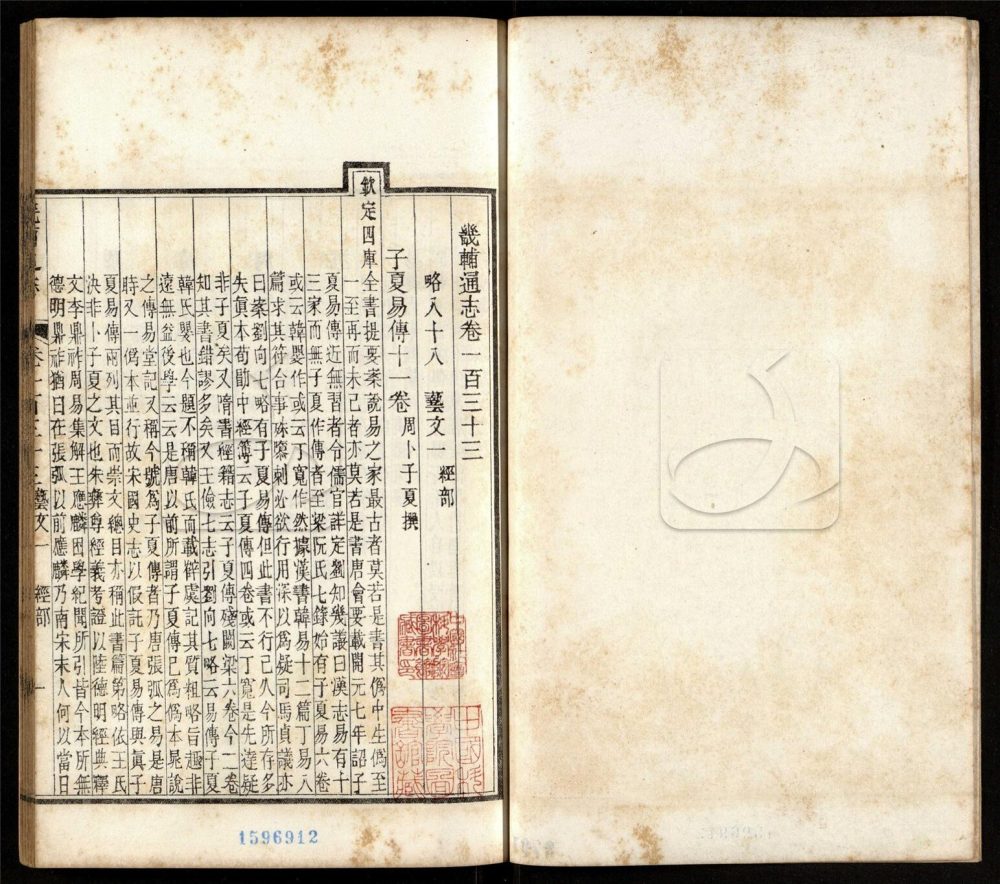 畿輔通志卷一百三十三
略八十八　藝文一　經部
子夏易傳十一卷　周卜子夏撰
欽定四庫全書提要案說易之家最古者莫若是書其偽中生偽至
一至再而未已者亦莫若是書唐會要載開元七年詔子
夏易傳近無習者令儒官詳定劉知幾議曰漢志易有十
三家而無子夏作傳者至梁阮氏七錄始有子夏易六卷
或云韓嬰作或云丁寬作然據漢書韓易十二篇丁易八
篇求其符合事殊隳刺必欲行用深以為疑司馬貞議亦
曰案劉向七略有子夏易傳但此書不行已久今所存多
失真本荀勖中經簿云子夏傳四卷或云丁寬是先達疑
非子夏矣又隋書經籍志云子夏傳殘闕梁六卷今二卷
知其書錯謬多矣又王儉七志引劉向七略云易傳子夏
韓氏嬰也今題不稱韓氏而載薛虞記其質粗略旨趣非
遠無益後學云云是唐以前所謂子夏傳已為偽本晁說
之傳易堂記又稱今號為子夏傳者乃唐張弧之易是唐
時又一偽本並行故宋國史志以假託子夏易傳與真子
夏易傳兩列其目而崇文總目亦稱此書篇第略依王氏
決非卜子夏之文也朱彝尊經義考證以陸德明經典釋
文李鼎祚周易集解王應麟困學紀聞所引皆今本所無
德明鼎祚猶曰在張弧以前應麟乃南宋末人何以當日
卷一百三十三藝文一　經部　一
1596912